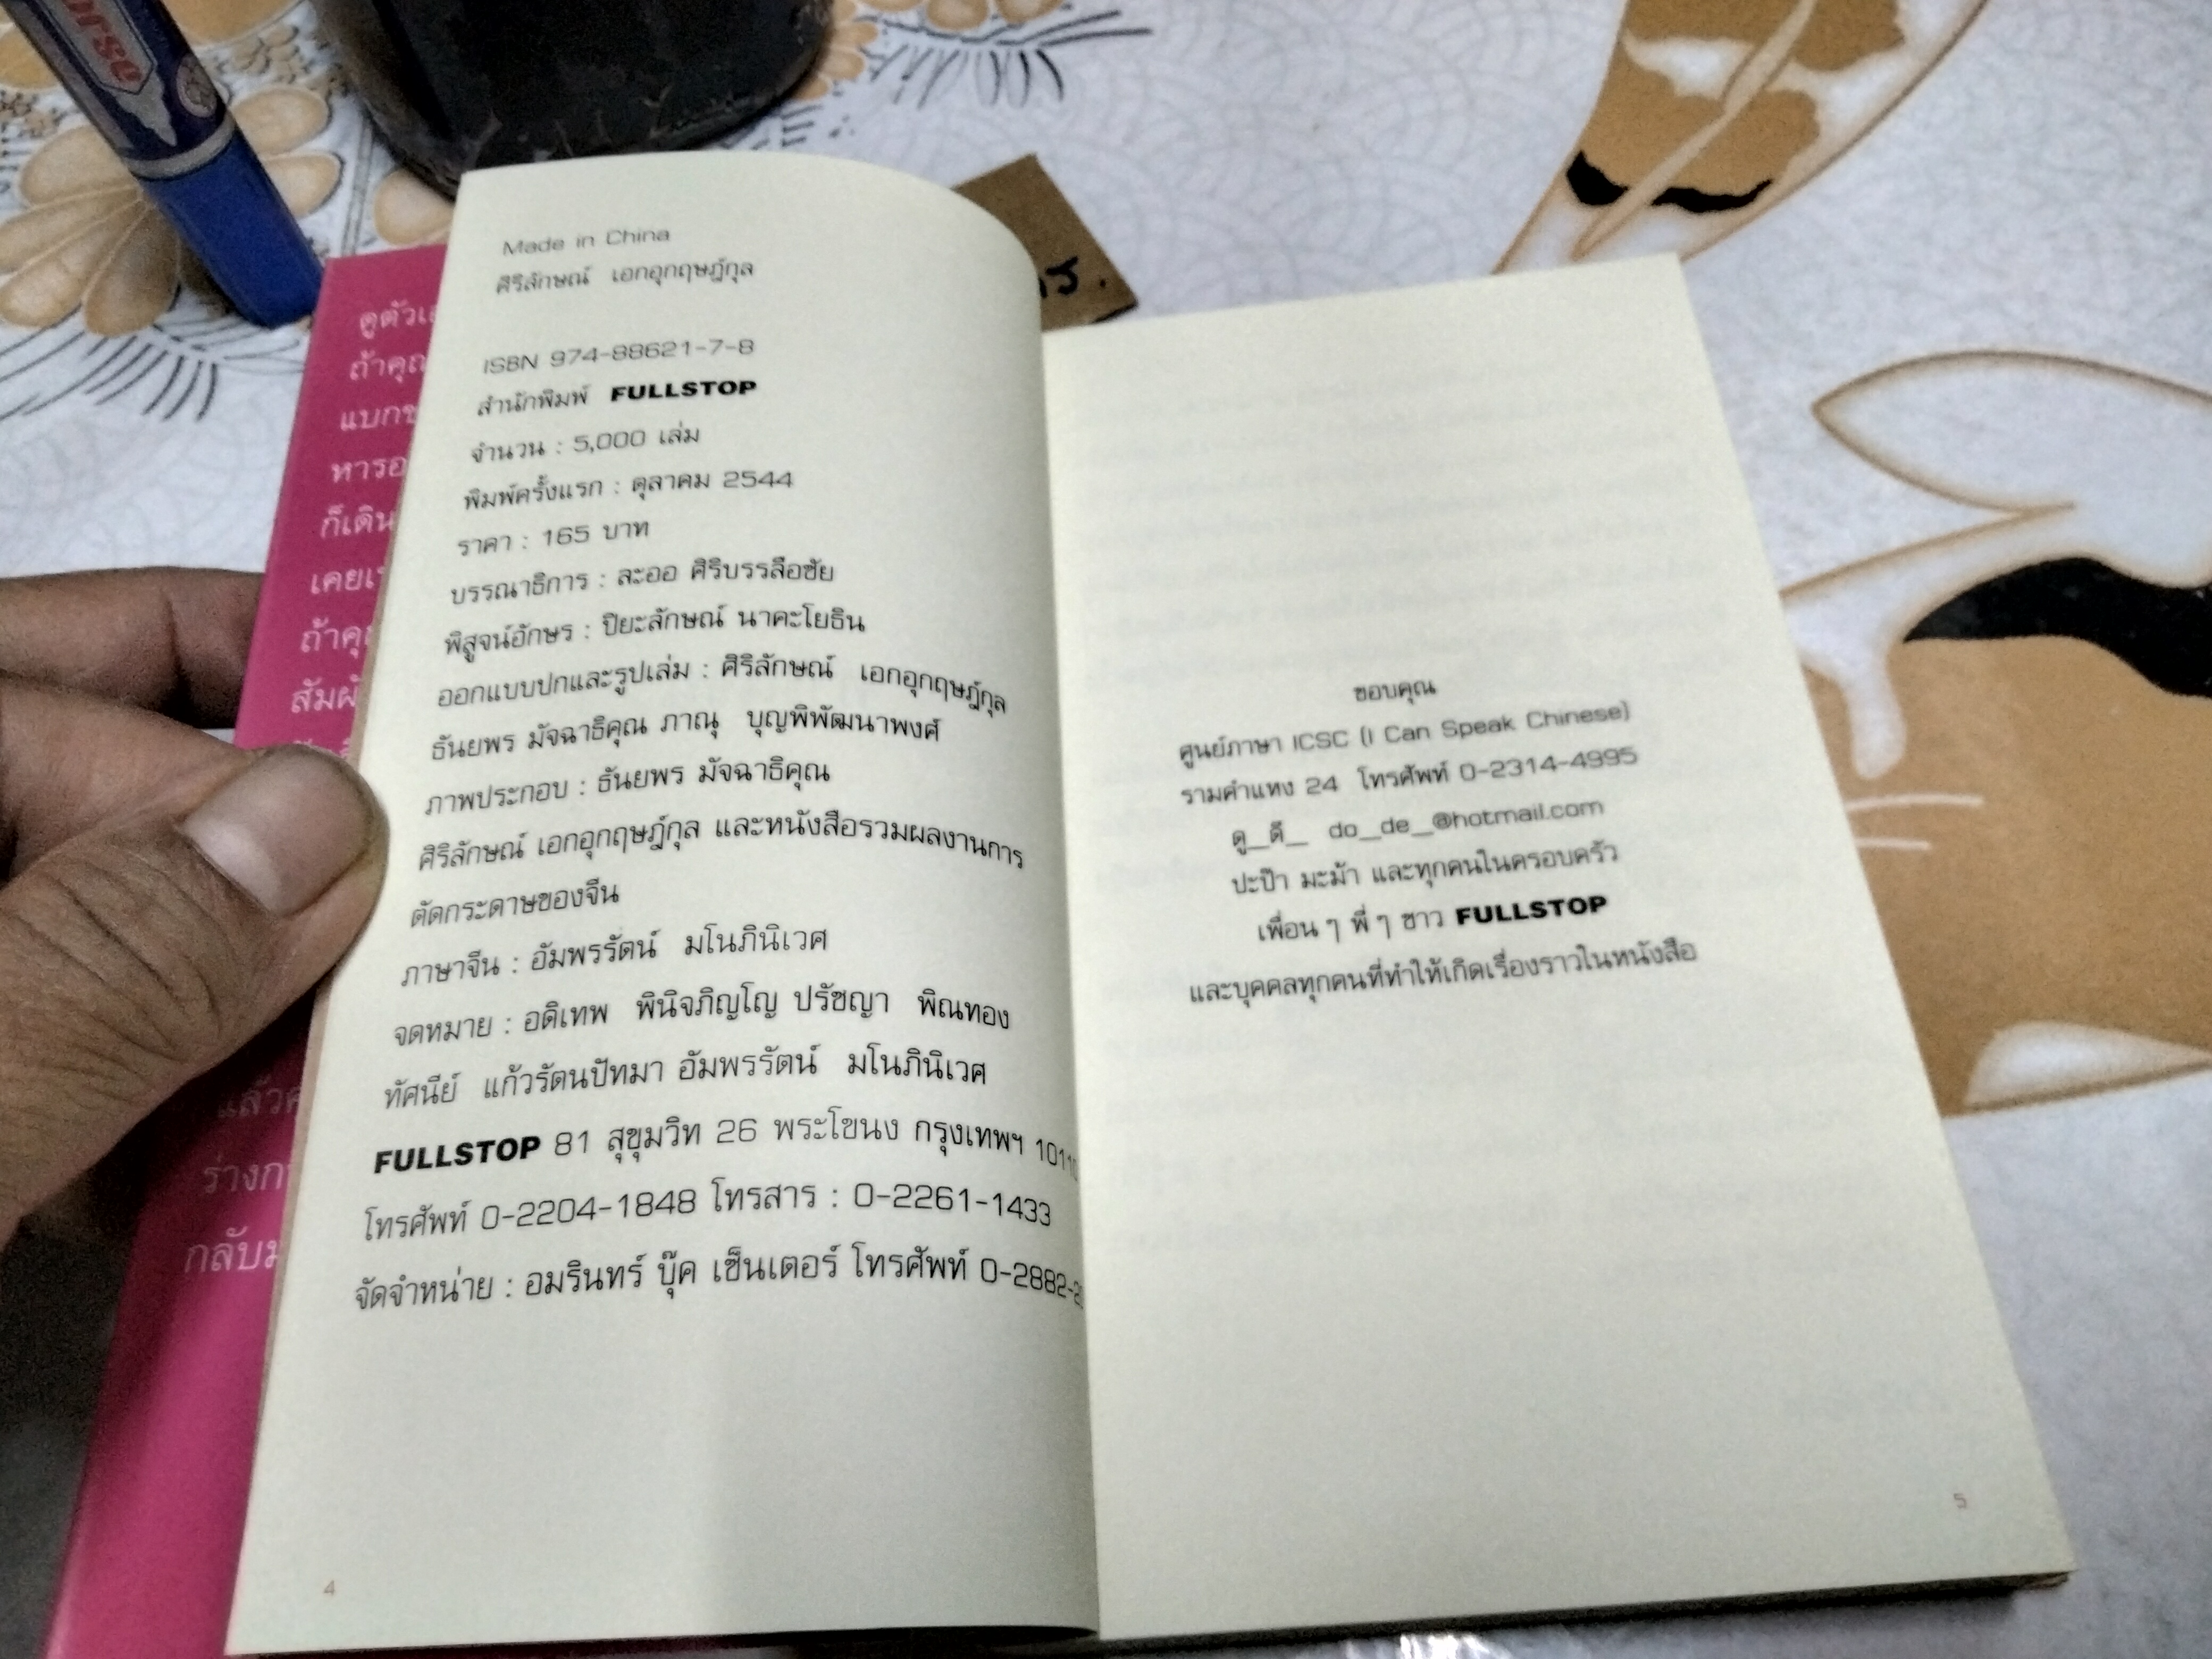 orse
ดูตัวเ
ถ้าคุณ
แบกข
หารอ
ก็เดิน
เคยเ
ถ้าคุ
สัมผั
แล้วค
ร่างก
กลับม
Made in China
ศิริลักษณ์ เอกอุกฤษฎ์กุล
ISBN 974-88621-7-8
สำนักพิมพ์ FULLSTOP
จำนวน : 5,000 เล่ม
พิมพ์ครั้งแรก : ตุลาคม 2544
ราคา : 165 บาท
บรรณาธิการ : ละออ ศิริบรรลือชัย
พิสูจน์อักษร : ปิยะลักษณ์ นาคะโยธิน
ออกแบบปกและรูปเล่ม : ศิริลักษณ์ เอกอุกฤษฎ์กุล
ธันยพร มัจฉาธิคุณ ภาณุ บุญพิพัฒนาพงศ์
ภาพประกอบ : ธันยพร มัจฉาธิคุณ
ศิริลักษณ์ เอกอุกฤษฎ์กุล และหนังสือรวมผลงานการ
ตัดกระดาษของจีน
ภาษาจีน : อัมพรรัตน์ มโนภินิเวศ
จดหมาย : อดิเทพ พินิจภิญโญ ปรัชญา พิณทอง
ทัศนีย์ แก้วรัตนปัทมา อัมพรรัตน์ มโนภินิเวศ
FULLSTOP 81 สุขุมวิท 26 พระโขนง กรุงเทพฯ 10110
โทรศัพท์ 0-2204-1848 โทรสาร : 0-2261-1433
จัดจำหน่าย : อมรินทร์ บุ๊ค เซ็นเตอร์ โทรศัพท์ 0-2882-2
4
ขอบคุณ
ศูนย์ภาษา ICSC (I Can Speak Chinese)
รามคำแหง 24 โทรศัพท์ 0-2314-4995
ดู_ดี_ do_de_@hotmail.com
ปะป๊า มะม้า และทุกคนในครอบครัว
เพื่อน ๆ พี่ ๆ ชาว FULLSTOP
และบุคคลทุกคนที่ทำให้เกิดเรื่องราวในหนังสือ
5